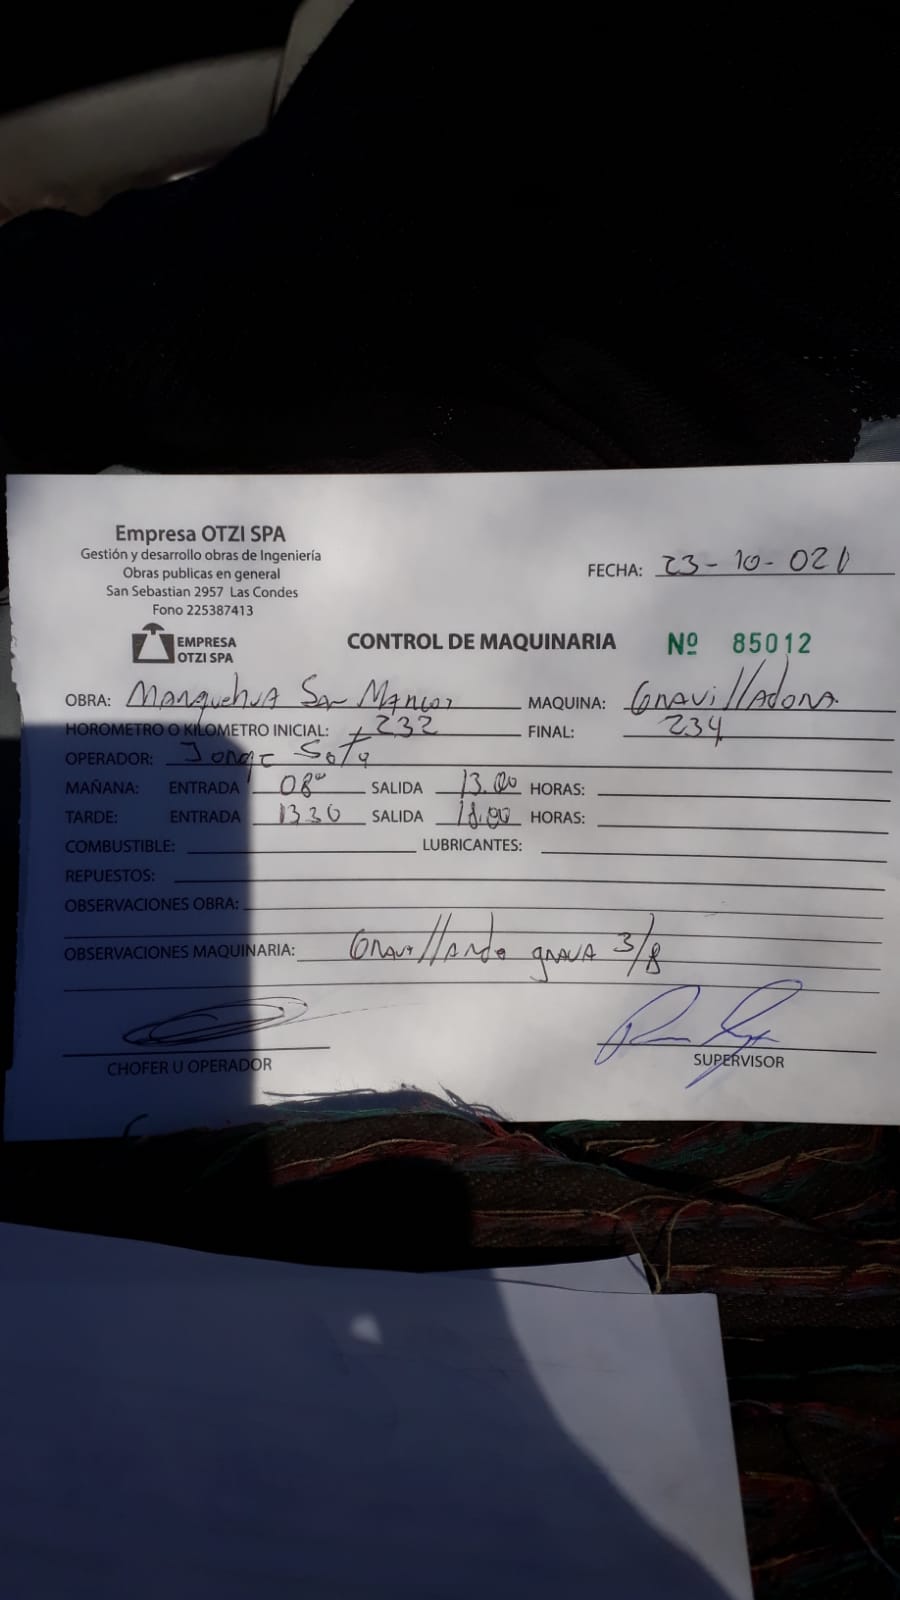 Empresa OTZI SPA
Gestión y desarrollo obras de Ingeniería
Obras publicas en general
San Sebastian 2957 Las Condes
Fono 225387413
FECHA: 23-10-021
EMPRESA
OTZI SPA
CONTROL DE MAQUINARIA Nº 85012
OBRA: Manquehua San Marcos MAQUINA: Gravilladora.
HOROMETRO O KILOMETRO INICIAL: 232 FINAL: 234
OPERADOR: Jorge Soto
MAÑANA: ENTRADA 08°° SALIDA 13.00 HORAS:
TARDE: ENTRADA 13 30 SALIDA 18.00 HORAS:
COMBUSTIBLE: LUBRICANTES:
REPUESTOS:
OBSERVACIONES OBRA:
OBSERVACIONES MAQUINARIA: Gravillando grava 3/8
CHOFER U OPERADOR SUPERVISOR